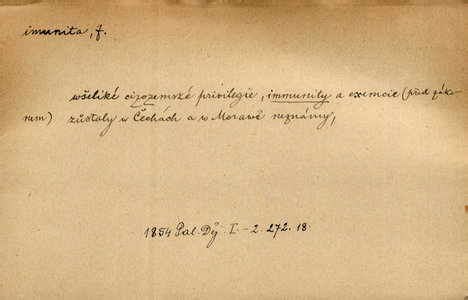 imunita, f.
wšeliké cizozemské privilegie, immunity a exemcie (před záko-
nem) zůstaly w Čechách a w Morawě neznámy,
1854 Pal. Děj. I. - 2. 272. 18.